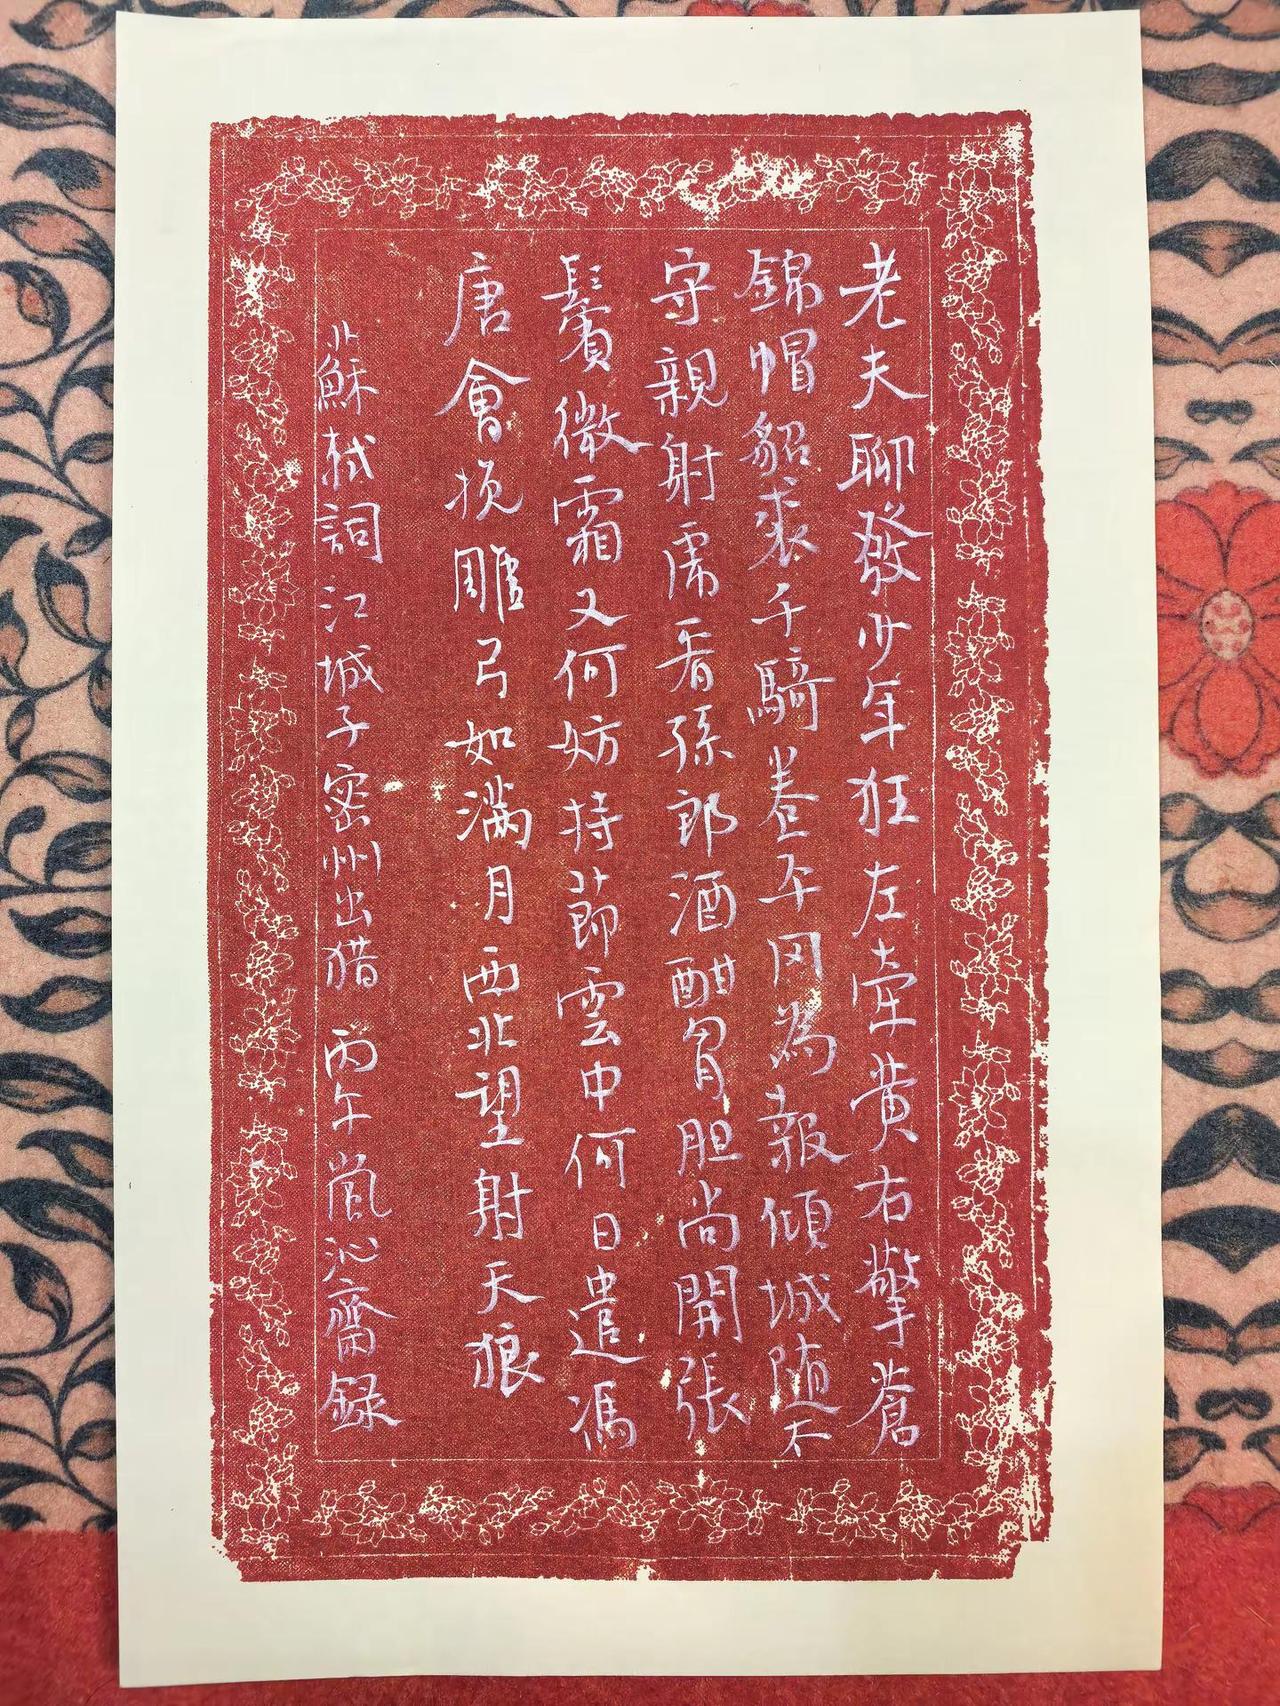 老夫聊發少年狂左牽黄右擎蒼
錦帽貂裘千騎卷平冈為報傾城随太
守親射虎看孫郎酒酣胷胆尚開張
鬢微霜又何妨持莭雲中何日遣馮
唐會挽雕弓如满月西北望射天狼
蘇軾詞江城子密州出猎 丙午嵐沁齋録